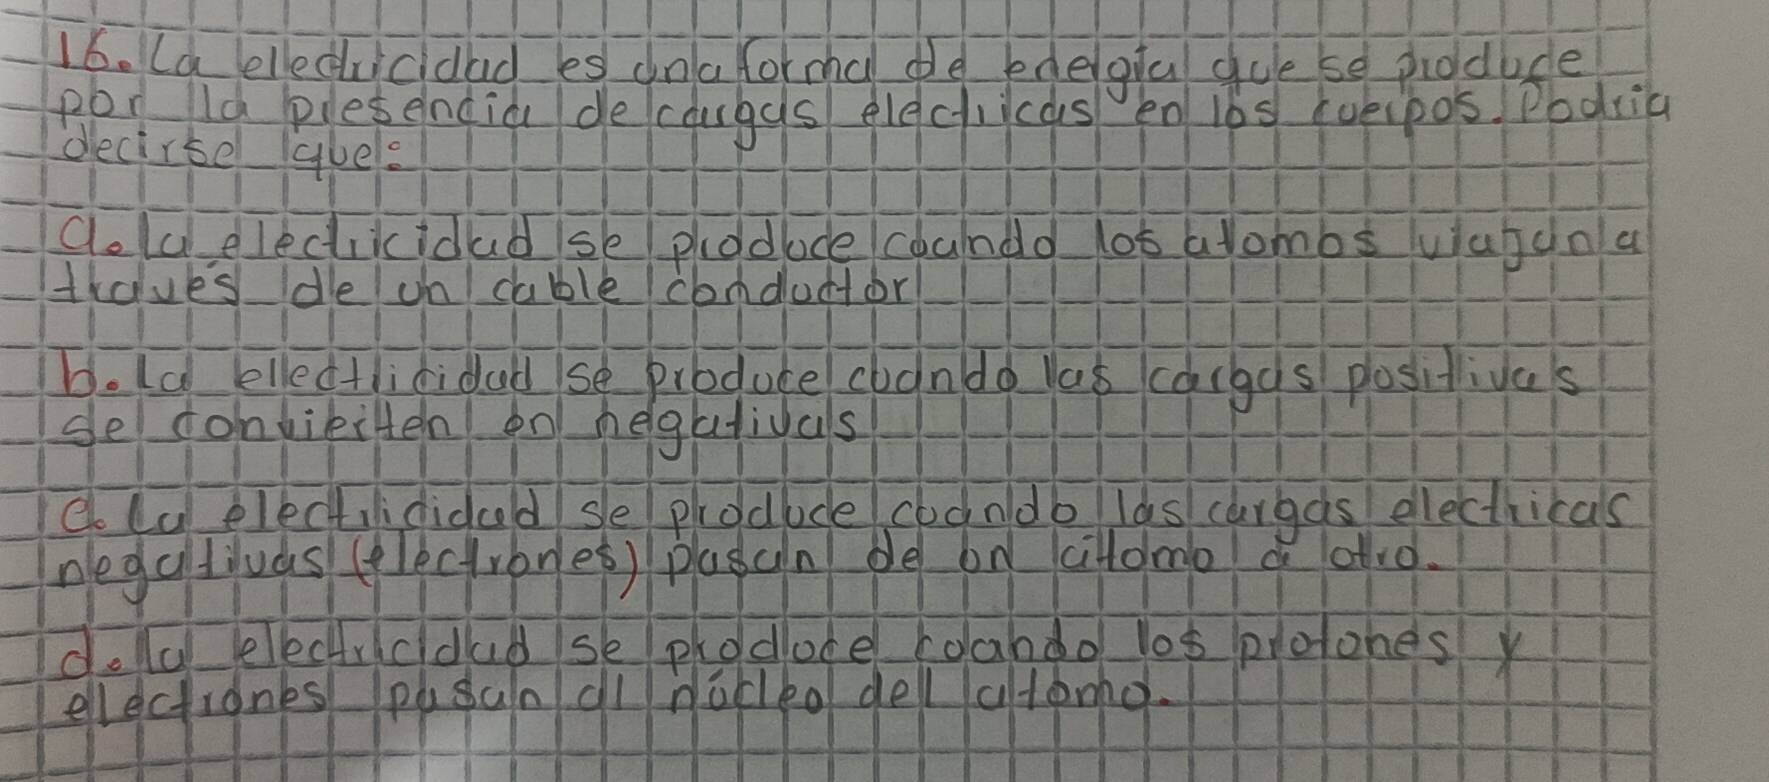 16. La electricidad es una forma de energía que se produce
por la presencia de cargas electricas en los cuerpos. Podria
decirse que:
a. la electricidad se produce cuando los atomos viajan a
través de un cable conductor
b. La electricidad se produce cuando las cargas positivas
se convierten en negativas
c. La electricidad se produce cuando las cargas electricas
negativas (electrones) pasan de un atomo a otro.
d. la electricidad se produce cuando los protones y
electrones pasan al núcleo del atomo.